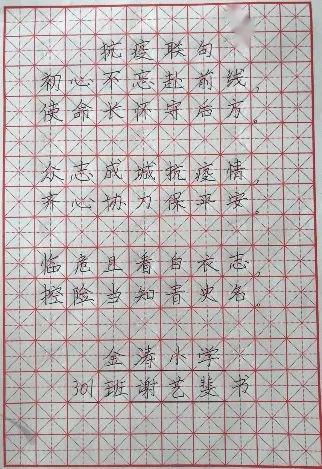 抗疫联句
初心不忘赴前线，
使命长怀守后方。
众志成城抗疫情，
齐心协力保平安。
临危且看白衣志，
控险当知青史名。
金涛小学
301班谢艺斐书